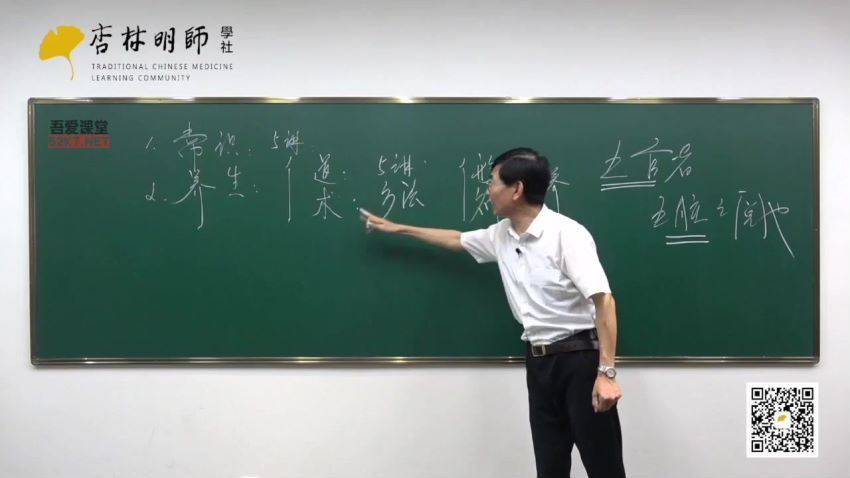 杏林明師 學社
TRADITIONAL CHINESE MEDICINE
LEARNING COMMUNITY
吾爱课堂
52KT.NET
1. 常识：5讲.
2. 养生： 道：5讲.
术：方法
五官者
五脏之阅也